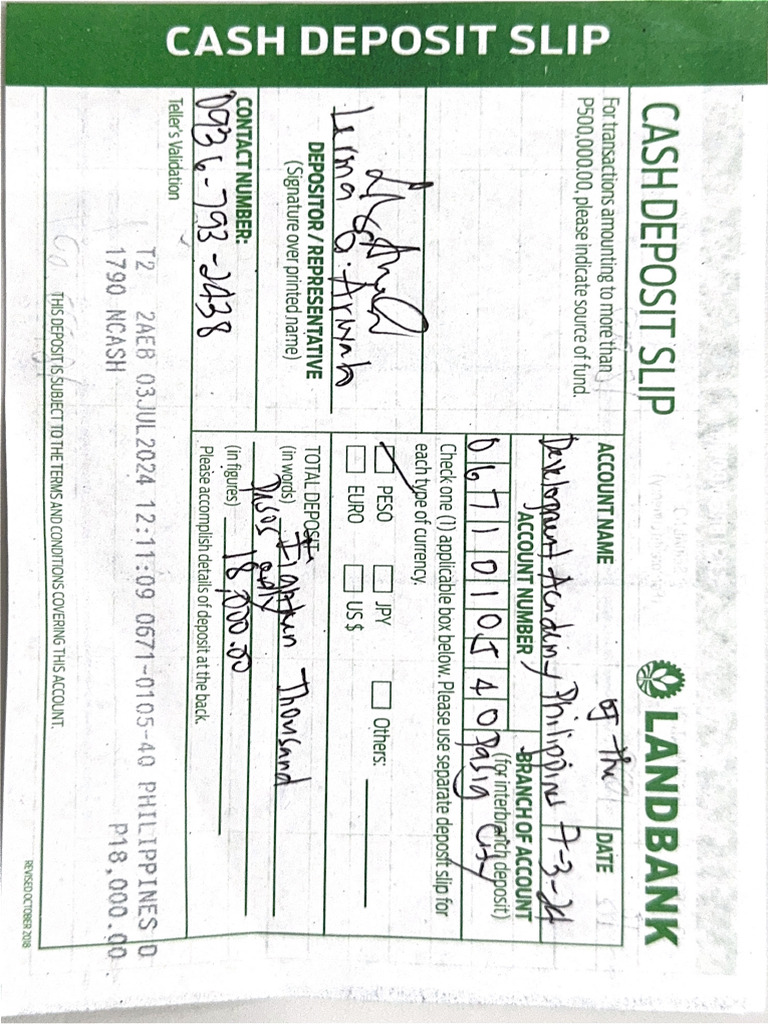 CASH DEPOSIT SLIP
CASH DEPOSIT SLIP
LANDBANK
For transactions amounting to more than
P500,000.00, please indicate source of fund.
ACCOUNT NAME
DATE
of the
Development Academy Philippines 7-3-24
ACCOUNT NUMBER
BRANCH OF ACCOUNT
(for interbranch deposit)
0671010540 Pasig City
Check one (1) applicable box below. Please use separate deposit slip for
each type of currency.
PESO JPY Others:
EURO US $
Lerma
DEPOSITOR / REPRESENTATIVE
(Signature over printed name)
TOTAL DEPOSIT
(in words) Eighteen Thousand
pesos only
(in figures) 18,000.00
Please accomplish details of deposit at the back.
CONTACT NUMBER:
0936-793-2438
Teller's Validation
T2 2AEB 03JUL2024 12:11:09 0671-0105-40 PHILIPPINES D
1790 NCASH P18,000.00
THIS DEPOSIT IS SUBJECT TO THE TERMS AND CONDITIONS COVERING THIS ACCOUNT.
REVISED OCTOBER 2018